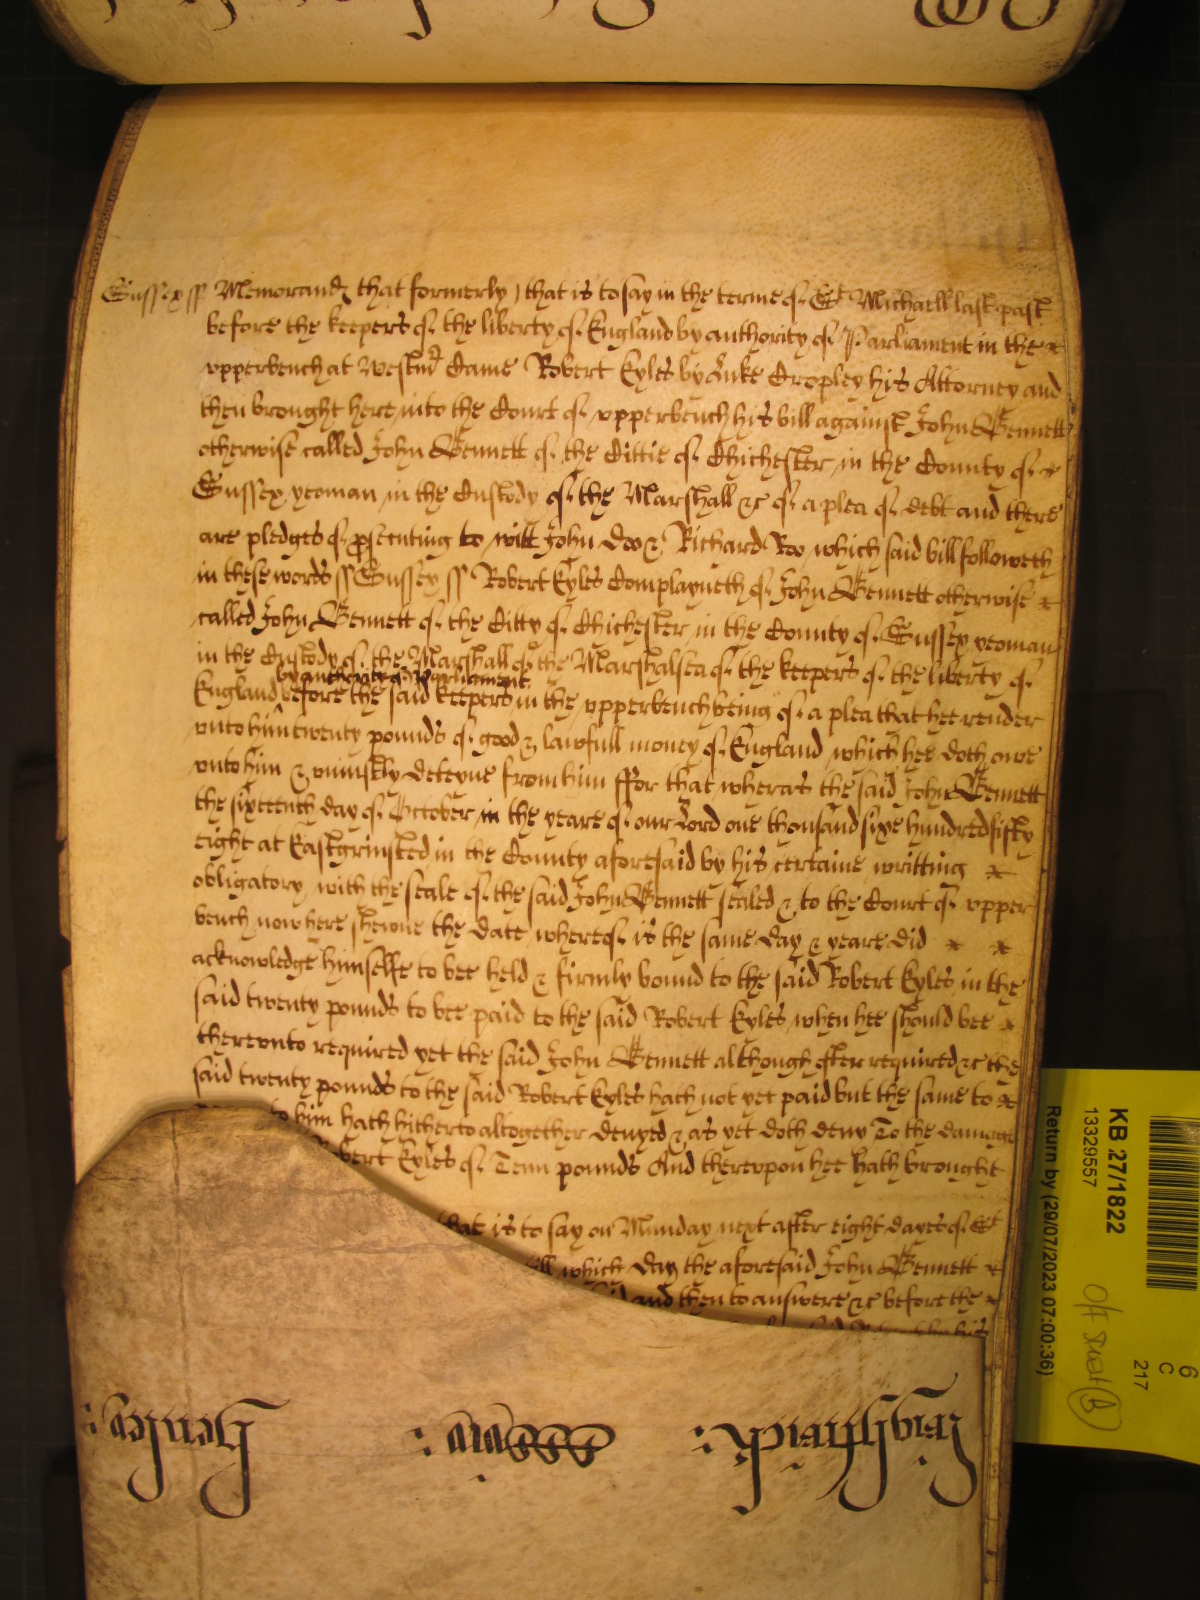 Sussex ss Memorand that formerly that is to say in the terme of St Michaell last past
before the keepers of the liberty of England by authority of Parliament in the
upperbench at Westmr Came Robert Eyles by Luke Cropley his Attorney and
then brought here into the Court of upperbench his bill against John Bennett
otherwise called John Bennett of the Cittie of Chichester in the County of
Sussex yeoman in the Custody of the Marshall &c of a plea of debt and there
are pledges of prosecuting to witt John Doo & Richard Roo which said bill followeth
in these words ss Sussex ss Robert Eyles Complayneth of John Bennett otherwise
called John Bennett of the Citty of Chichester in the County of Sussex yeoman
in the Custody of the Marshall of the Marshalsea of the keepers of the liberty of
by authority of Parliament
England before the said keepers in the upperbench being of a plea that hee render
unto him twenty pounds of good & lawfull money of England which hee doth owe
unto him & uniustly deteyne from him ffor that wheras the said John Bennett
the sixteenth day of October in the yeare of our Lord one thousand sixe hundred fifty
eight at Eastgrinsted in the County aforesaid by his certaine writting
obligatory with the seale of the said John Bennett sealed & to the Court of upper
bench now here shewne the date whereof is the same day & yeare did
acknowledge himselfe to bee held & firmly bound to the said Robert Eyles in the
said twenty pounds to bee paid to the said Robert Eyles when hee should bee
thereunto required yet the said John Bennett although often required &c the
said twenty pounds to the said Robert Eyles hath not yet paid but the same to
to him hath hitherto altogether denyed & as yet doth deny To the damage
Robert Eyles of Tenn pounds And thereupon hee hath brought
that is to say on Munday next after eight dayes of St
which day the aforesaid John Bennett
and then to answere &c before the
KB 27/1822
13329557
Return by (29/07/2023 07:00:36)
6
C
217